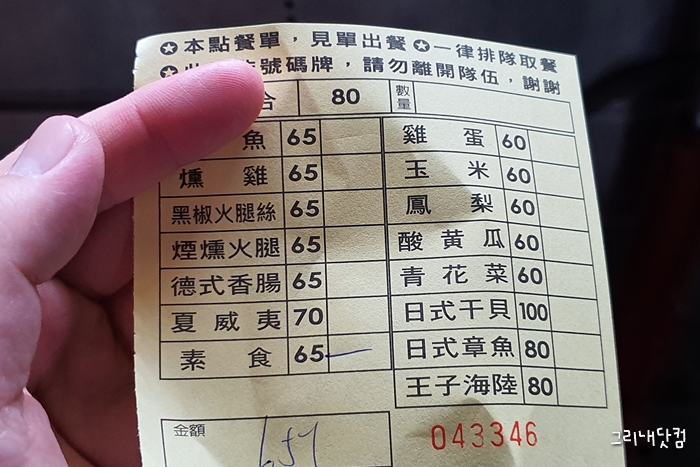 ✪本點餐單，見單出餐✪一律排隊取餐
✪ 號碼牌，請勿離開隊伍，謝謝
合 80 數量
魚 65 雞蛋 60
燻雞 65 玉米 60
黑椒火腿絲 65 鳳梨 60
煙燻火腿 65 酸黃瓜 60
德式香腸 65 青花菜 60
夏威夷 70 日式干貝 100
素食 65 日式章魚 80
王子海陸 80
金額 043346
그리내닷컴